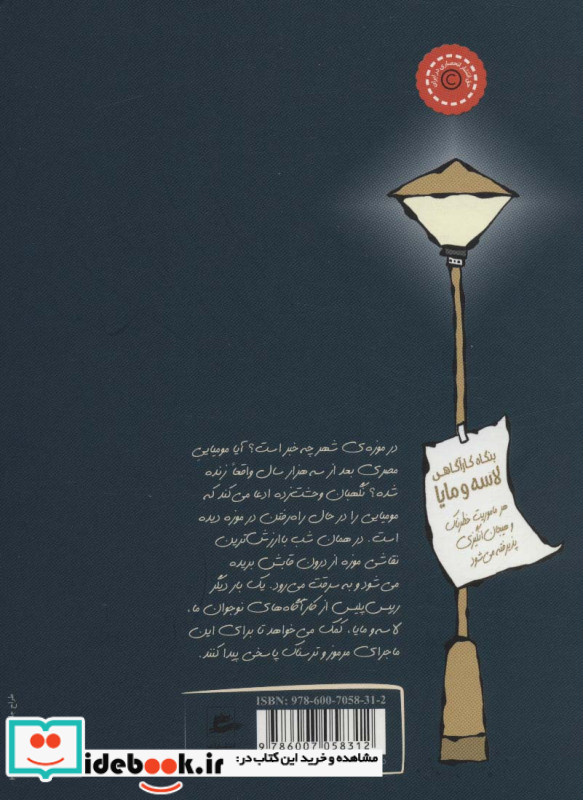 حق انتشار انحصاری در ایران
©
بنگاه کارآگاهی
لاسه و مایا
هر ماموریت خطرناک
و هیجان انگیزی
پذیرفته می‌شود
در موزه‌ی شهر چه خبر است؟ آیا مومیایی
مصری بعد از سه هزار سال واقعاً زنده
شده؟ نگهبان وحشت‌زده ادعا می‌کند که
مومیایی را در حال راه‌رفتن در موزه دیده
است. در همان شب باارزش‌ترین
نقاشی موزه از درون قابش بریده
می‌شود و به سرقت می‌رود. یک بار دیگر
رییس‌پلیس از کارآگاه‌های نوجوان ما،
لاسه و مایا، کمک می‌خواهد تا برای این
ماجرای مرموز و ترسناک پاسخی پیدا کنند.
ISBN: 978-600-7058-31-2
9 786007 058312
مشاهده و خرید این کتاب در:
idebook.ir